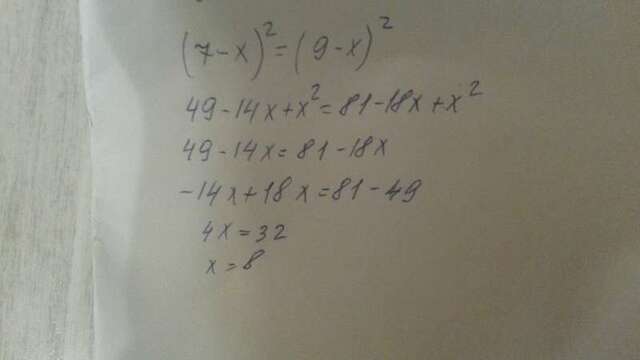 (7-x)² = (9-x)²
49-14x+x² = 81-18x+x²
49-14x = 81-18x
-14x+18x = 81-49
4x = 32
x = 8